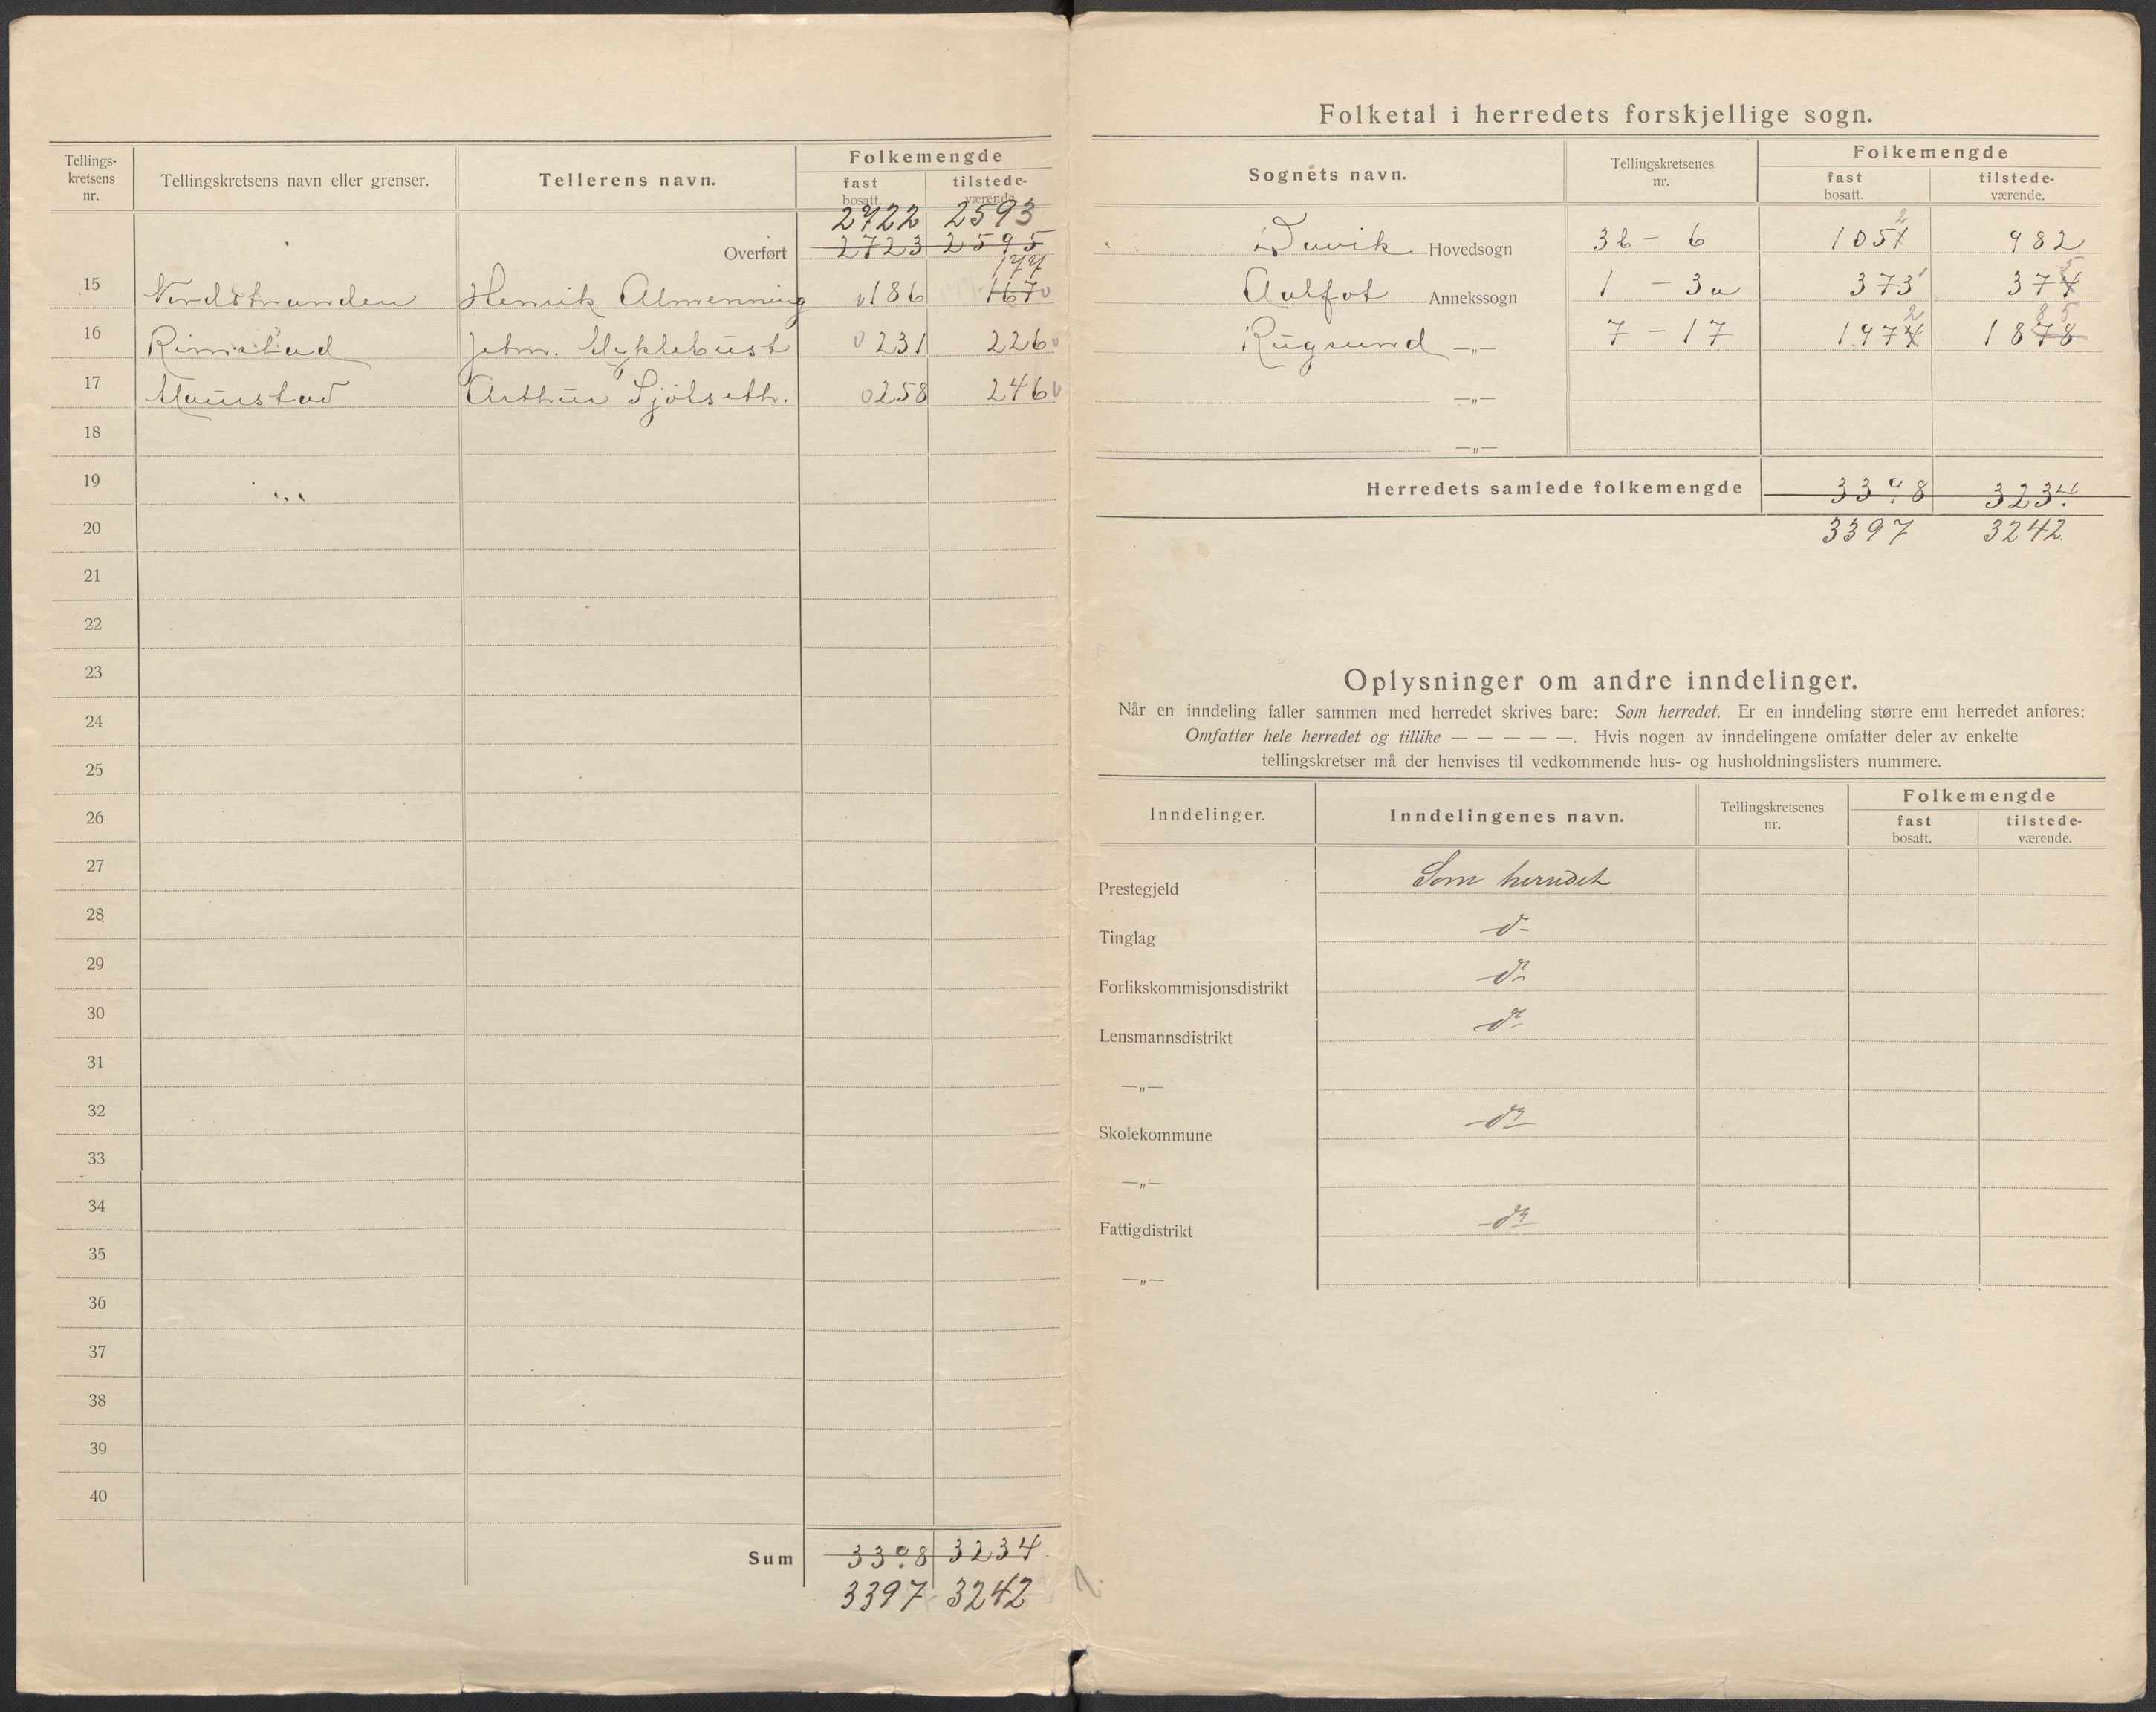 Tellings-
kretsens
nr.
Tellingskretsens navn eller grenser.
Tellerens navn.
Folkemengde
fast
bosatt.
tilstede-
værende.
2722 2593
Overført 2723 2595
177
15 Nordstranden Henrik Almenning 186 167
16 Rimstad John. Myklebust 231 226
17 Maurstad Arthur Sjölseth. 258 246
18
19
20
21
22
23
24
25
26
27
28
29
30
31
32
33
34
35
36
37
38
39
40
Sum 3308 3234
3397 3242
Folketal i herredets forskjellige sogn.
Sognets navn.
Tellingskretsenes
nr.
Folkemengde
fast
bosatt.
tilstede-
værende.
Davik Hovedsogn 3b - 6 1051 2 982
Aalfot Annekssogn 1 - 3a 373 374 5
Rugsund —„— 7 - 17 1974 2 1878 85
—„—
—„—
Herredets samlede folkemengde 3308 3234
3397 3242
Oplysninger om andre inndelinger.
Når en inndeling faller sammen med herredet skrives bare: Som herredet. Er en inndeling større enn herredet anføres:
Omfatter hele herredet og tillike — — — — —. Hvis nogen av inndelingene omfatter deler av enkelte
tellingskretser må der henvises til vedkommende hus- og husholdningslisters nummere.
Inndelinger.
Inndelingenes navn.
Tellingskretsenes
nr.
Folkemengde
fast
bosatt.
tilstede-
værende.
Prestegjeld Som herredet
Tinglag do
Forlikskommisjonsdistrikt do
Lensmannsdistrikt do
—„—
Skolekommune do
—„—
Fattigdistrikt do
—„—